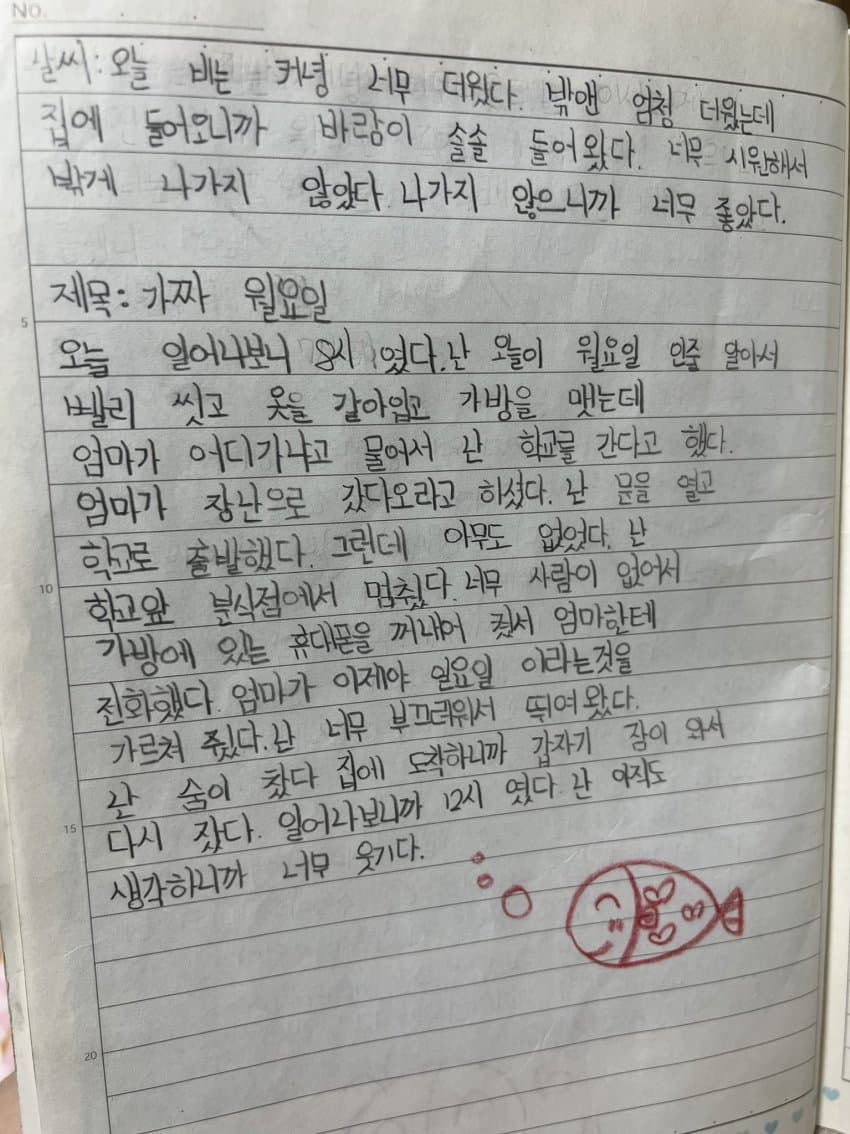 No.
날씨: 오늘 비는 커녕 너무 더웠다. 밖앤 엄청 더웠는데
집에 들어오니까 바람이 솔솔 들어왔다. 너무 시원해서
밖게 나가지 않았다. 나가지 않으니까 너무 좋았다.
5
제목: 가짜 월요일
오늘 일어나보니 8시 였다. 난 오늘이 월요일 인줄 알아서
빨리 씻고 옷을 갈아입고 가방을 맷는데
엄마가 어디가냐고 물어서 난 학교를 간다고 했다.
엄마가 장난으로 갔다오라고 하셨다. 난 문을 열고
학교로 출발했다. 그런데 아무도 없었다. 난
10
학교앞 분식점에서 멈췄다. 너무 사람이 없어서
가방에 있는 휴대폰을 꺼내어 켰서 엄마한테
전화했다. 엄마가 이제야 일요일 이라는것을
가르쳐 줬다. 난 너무 부끄러워서 뛰여왔다.
난 숨이 찼다 집에 도착하니까 갑자기 잠이 와서
15
다시 잤다. 일어나보니까 12시 였다. 난 아직도
생각하니까 너무 웃기다.
20